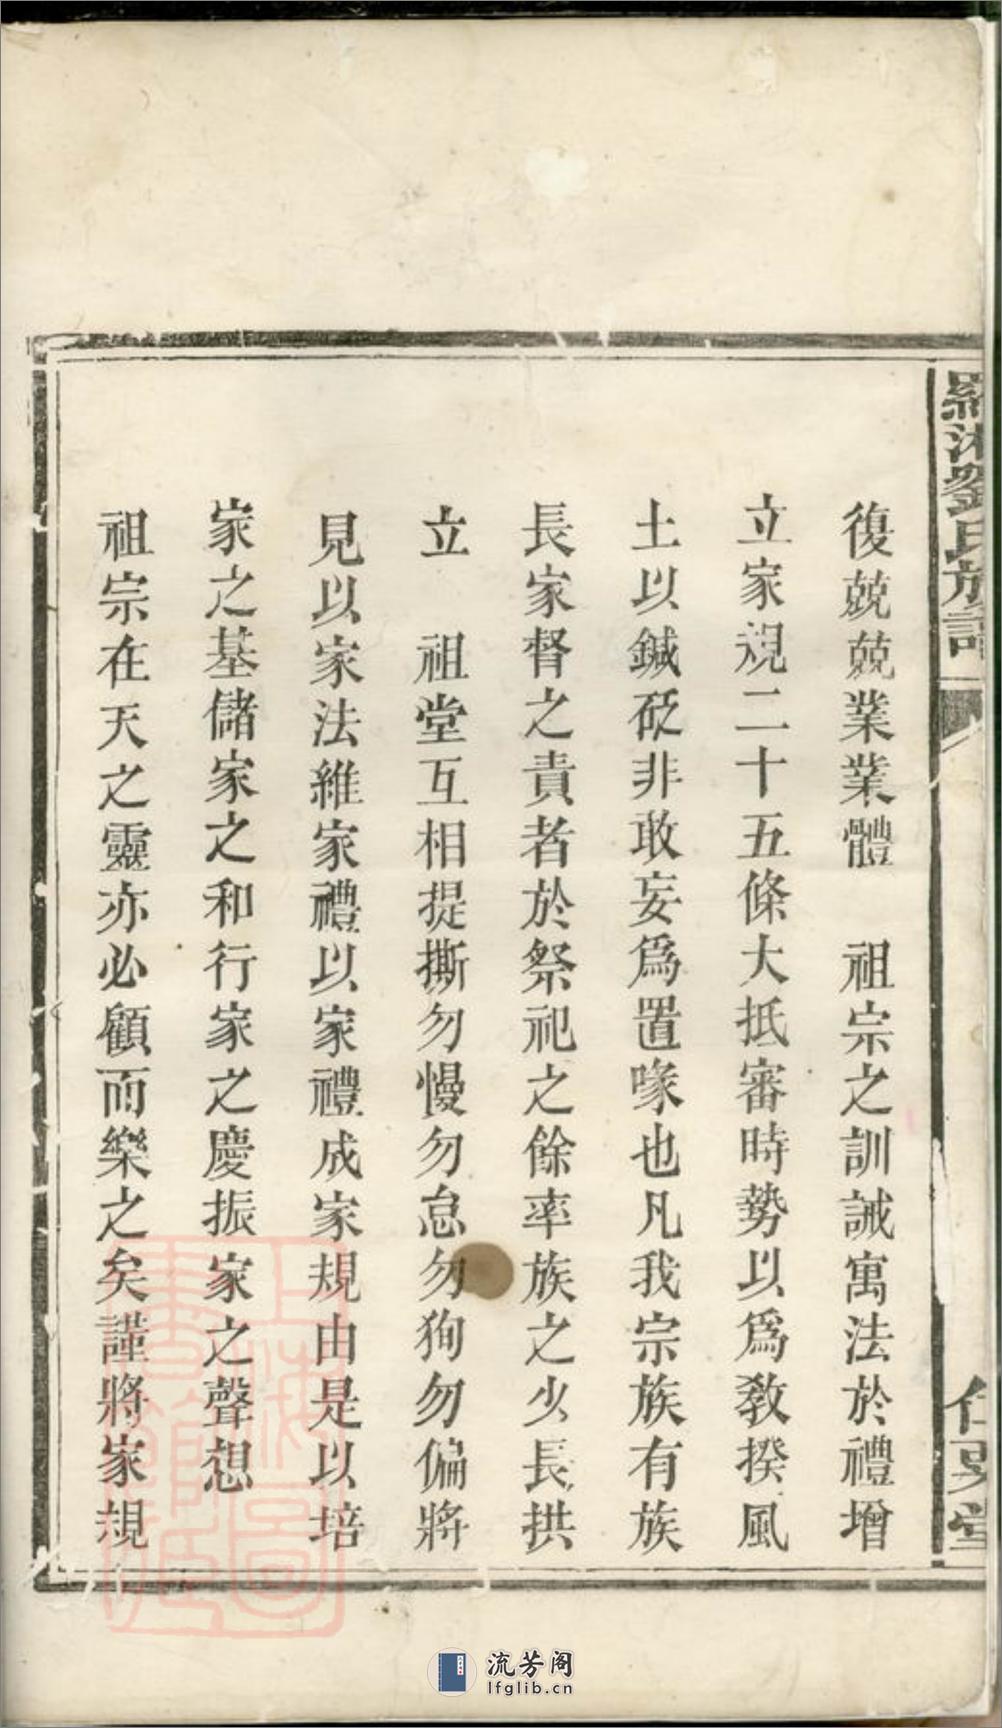 羅湘劉氏族譜
仁 堂
復兢兢業業體 祖宗之訓誡寓法於禮增
立家規二十五條大抵審時勢以爲教揆風
土以鍼砭非敢妄爲置喙也凡我宗族有族
長家督之責者於祭祀之餘率族之少長拱
立 祖堂互相提撕勿慢勿怠勿狥勿偏將
見以家法維家禮以家禮成家規由是以培
家之基儲家之和行家之慶振家之聲想
祖宗在天之靈亦必顧而樂之矣謹將家規
上海圖書館藏
流芳阁
lfglib.cn